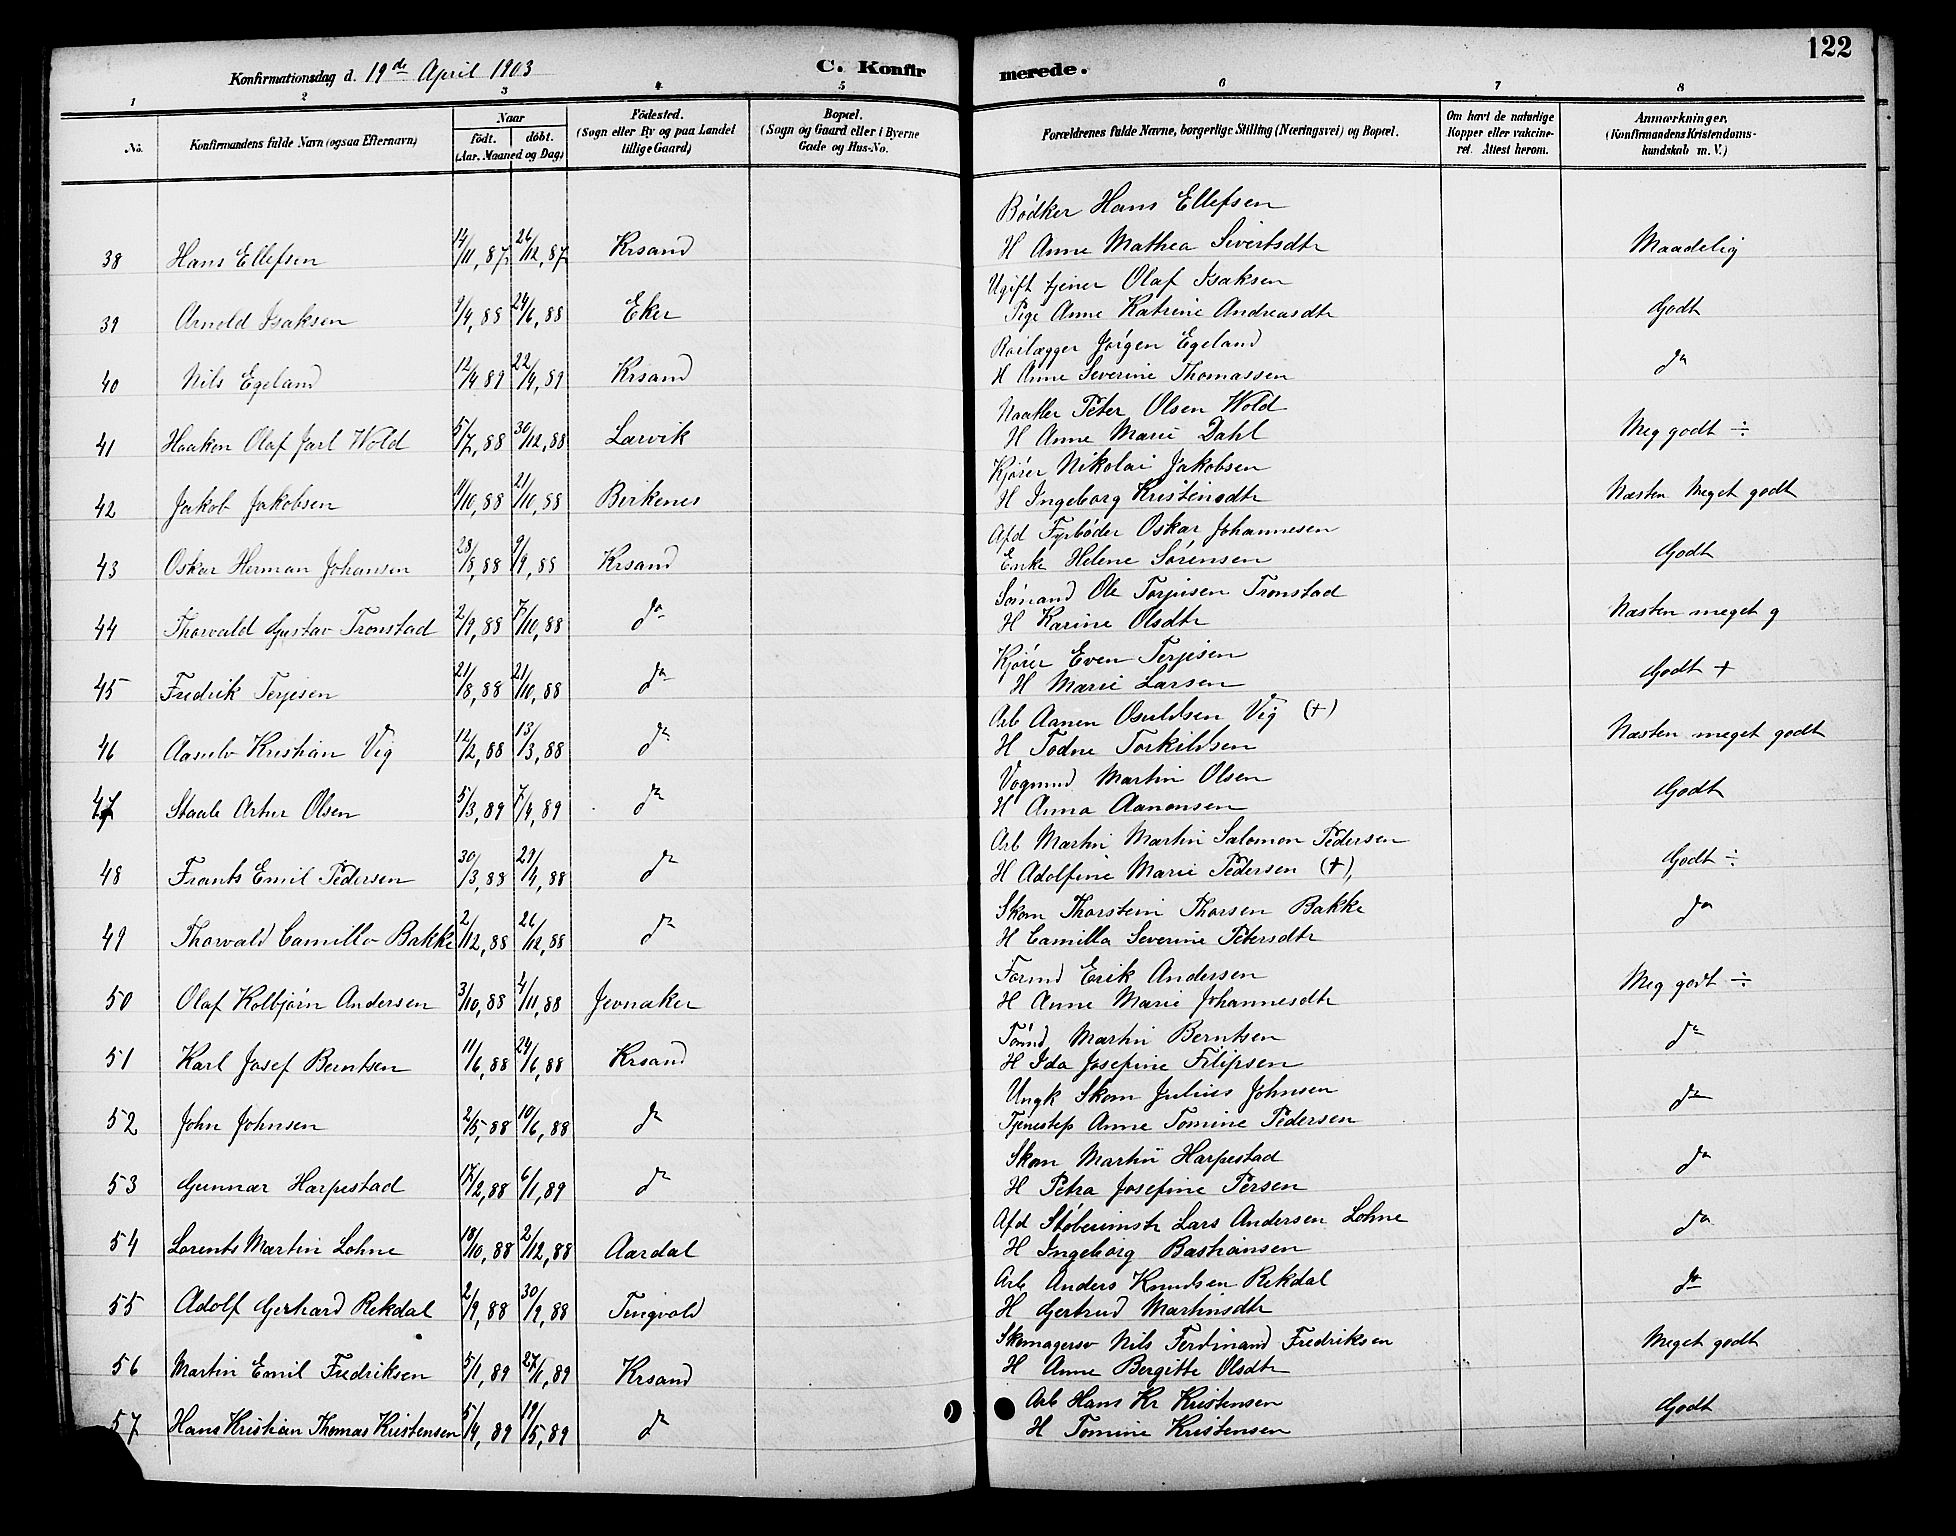 122
Konfirmationsdag d. 19de April 1903
C. Konfirmerede.
1 2 3 4 5 6 7 8
No. Konfirmandens fulde Navn (ogsaa Efternavn) Naar födt. döbt. (Aar. Maaned og Dag) Födested. (Sogn eller By og paa Landet tillige Gaard) Bopæl. (Sogn og Gaard eller i Byerne Gade og Hus-No. Forældrenes fulde Navne, borgerlige Stilling (Næringsvei) og Bopæl. Om havt de naturlige Kopper eller vakcineret. Attest herom. Anmærkninger, (Konfirmandens Kristendomskundskab m. V.)
Bödker Hans Ellefsen
38 Hans Ellefsen 14/11, 87 26/12, 87 Krsand H Anne Mathea Sivertsdtr Maadelig
Ugift tjener Olaf Isaksen
39 Arnold Isaksen 9/4, 88 24/6, 88 Eker Pige Anne Katrine Andreasdtr Godt
Railægger Jörgen Egeland
40 Nils Egeland 12/4 89 22/4, 89 Krsand H Anne Severine Thomassen do
Peter Olsen Wold
41 Haakon Olaf Jarl Wold 5/7, 88 30/12, 88 Larvik H Anne Marie Dahl Meg godt ÷
Kjörer Nikolai Jakobsen
42 Jakob Jakobsen 11/10, 88 21/10, 88 Birkenes H Ingeborg Kristensdtr Næsten Meget godt
Afd Fyrböder Oskar Johannesen
43 Oskar Herman Johansen 28/8, 88 9/9, 88 Krsand Enke Helene Sörensen Godt
Sömand Ole Torjusen Tronstad
44 Thorvald Gustav Tronstad 2/9, 88 7/10, 88 do H Karine Olsdtr Næsten meget g
Kjörer Even Terjesen
45 Fredrik Terjesen 21/8, 88 21/10, 88 do H Marie Larsen Godt +
Arb Aanen Osuldsen Vig (+)
46 Aasulv Kristian Vig 12/2, 88 13/3, 88 do H Todne Torkildsen Næsten meget godt
Vognmd Martin Olsen
47 Staale Artur Olsen 5/3, 89 7/4, 89 do H Anna Aanonsen Godt
Arb Martin Martin Salomon Pedersen
48 Frants Emil Pedersen 30/3, 88 29/4, 88 do H Adolfine Marie Pedersen (+), Godt ÷
Skom Thorstein Thorsen Bakke
49 Thorvald Camillo Bakke 2/12, 88 26/12, 88 do H Camilla Severine Petersdtr do
Formd Erik Andersen
50 Olaf Kolbjörn Andersen 3/10, 88 4/11, 88 Jevnaker H Anne Marie Johannesdtr Meg godt ÷
Tömd Martin Berntsen
51 Karl Josef Berntsen 11/6, 88 24/6, 88 Krsand H Ida Josefine Filipsen do
Ungk Skom Julius Johnsen
52 John Johnsen 2/5, 88 10/6, 88 do Tjenestep Anne Tomine Pedersen do
Skom Martin Harpestad
53 Gunnar Harpestad 17/2, 88 6/1, 89 do H Petra Josefine Persen do
Afd Stöberimstr Lars Andersen Lohne
54 Lorents Martin Lohne 18/10, 88 2/12, 88 Aardal H Ingeborg Bastiansen do
Arb Anders Knudsen Rekdal
55 Adolf Gerhard Rekdal 2/9, 88 30/9, 88 Tingvold H Gertrud Martinsdtr do
Skomagersv Nils Ferdinand Fredriksen
56 Martin Emil Fredriksen 5/1, 89 27/1, 89 Krsand H Anne Bergitte Olsdtr Meget godt
Arb Hans Kr Kristensen
57 Hans Kristian Thomas Kristensen 5/4, 89 19/5, 89 do H Tomine Kristensen Godt